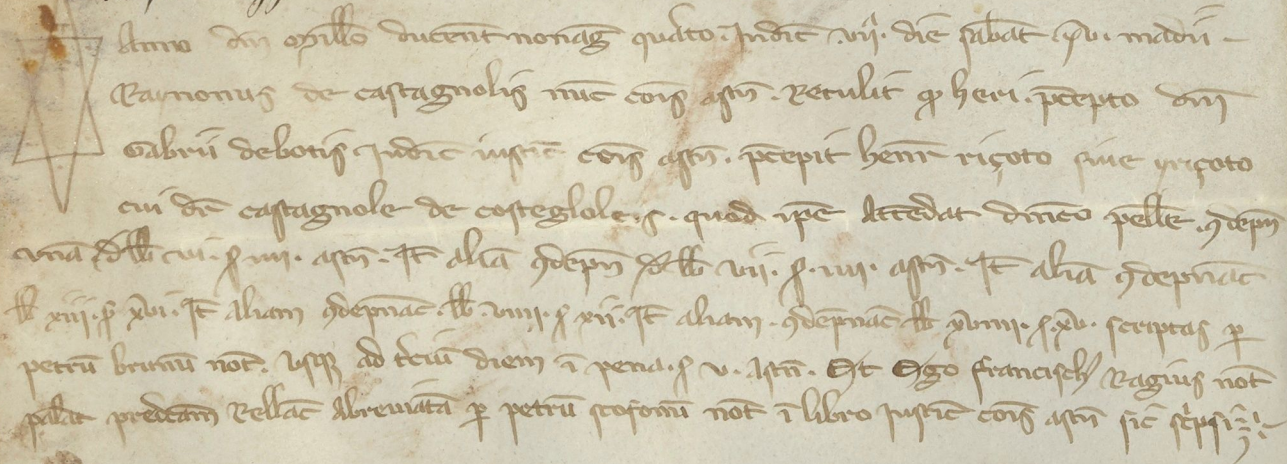 Anno dni millo ducent nonag quarto. Indic vii. die sabat xv. madii
Raynonus de castagnolis nunc cois astn. Retulit q heri. pcepto dni
Gabrii debotis Iudic iustic cois astn. pcepit henr riçoto siue yriçoto
cui dr castagnole de costeglole. s. quod ipe Attedat dnico pellet. 9depn
una d lb vi. s iiii. astn. It alia 9depn d lb vii. s. iiii. astn. It alia 9depnac
lb xiii. s xvi. It aliam 9depnac. lb. viiii. s xii. It aliam. 9depnac lb xviiii. s. xv. scriptas p
petru brunu not. usq ad tciu diem i pena. s v. astn. Et Ego francisch Ragius not
palat predcam Rellac Abreuiata p petru not i libro Iustic cois astn sic scripsi